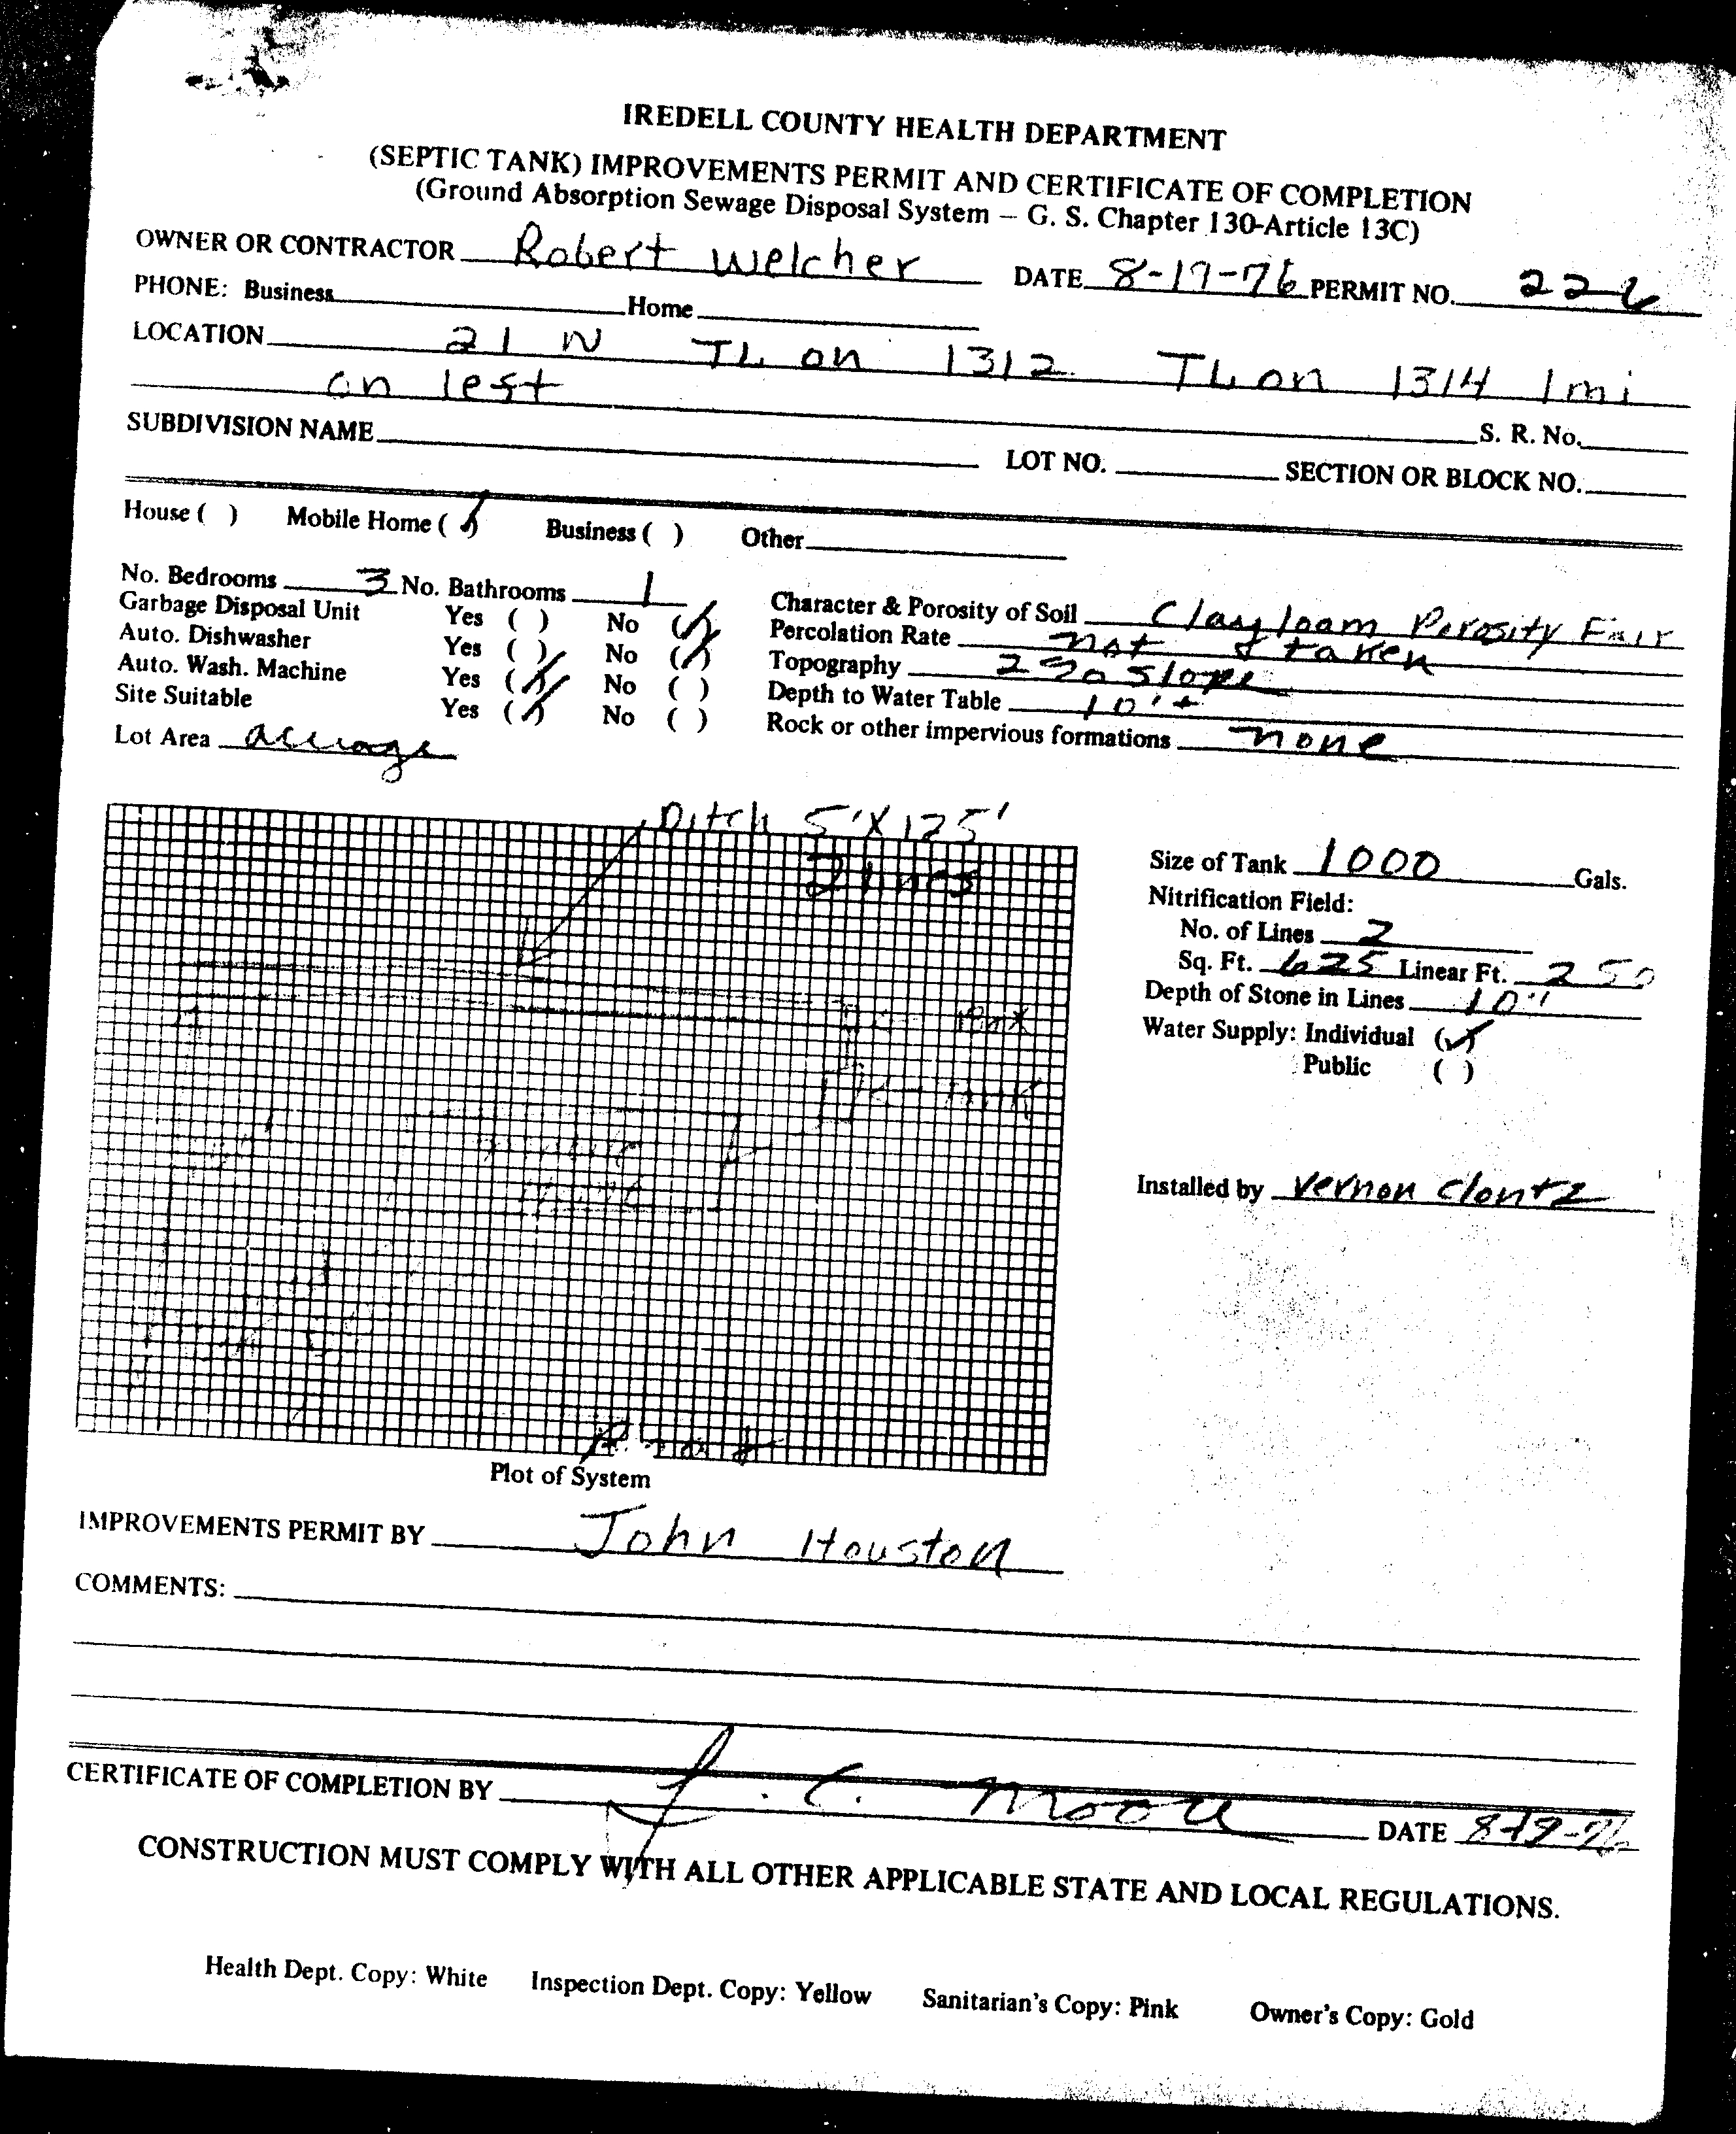 IREDELL COUNTY HEALTH DEPARTMENT
(SEPTIC TANK) IMPROVEMENTS PERMIT AND CERTIFICATE OF COMPLETION
(Ground Absorption Sewage Disposal System – G. S. Chapter 130-Article 13C)
OWNER OR CONTRACTOR Robert Welcher DATE 8-17-76 PERMIT NO. 226
PHONE: Business Home
LOCATION 21 N TL on 1312 TL on 1314 1 mi
on left S. R. No.
SUBDIVISION NAME LOT NO. SECTION OR BLOCK NO.
House ( ) Mobile Home (✓) Business ( ) Other
No. Bedrooms 3 No. Bathrooms 1
Garbage Disposal Unit Yes ( ) No (✓)
Auto. Dishwasher Yes ( ) No (✓)
Auto. Wash. Machine Yes (✓) No ( )
Site Suitable Yes (✓) No ( )
Lot Area acreage
Character & Porosity of Soil Clay loam Porosity Fair
Percolation Rate not taken
Topography 2% slope
Depth to Water Table 10'+
Rock or other impervious formations none
Ditch 5'X125'
2 lines
Box
tank
Road
Plot of System
Size of Tank 1000 Gals.
Nitrification Field:
No. of Lines 2
Sq. Ft. 625 Linear Ft. 250
Depth of Stone in Lines 10"
Water Supply: Individual (✓)
Public ( )
Installed by Vernon Clontz
IMPROVEMENTS PERMIT BY John Houston
COMMENTS:
CERTIFICATE OF COMPLETION BY J. C. Moore DATE 8-19-76
CONSTRUCTION MUST COMPLY WITH ALL OTHER APPLICABLE STATE AND LOCAL REGULATIONS.
Health Dept. Copy: White Inspection Dept. Copy: Yellow Sanitarian's Copy: Pink Owner's Copy: Gold